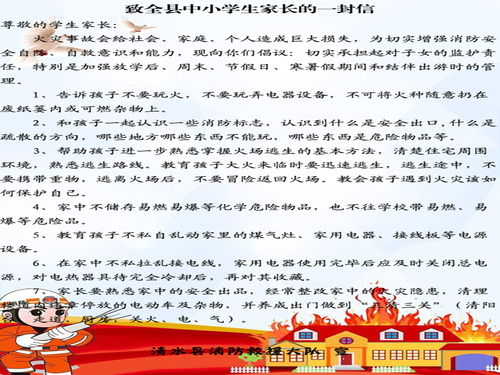 致全县中小学生家长的一封信
尊敬的学生家长:
火灾事故会给社会、家庭、个人造成巨大损失,为切实增强消防安
全自防、自救意识和能力,现向你们倡议:切实承担起对子女的监护责
任,特别是加强放学后、周末、节假日、寒暑假期间和结伴出游时的管
理。
1、告诉孩子不要玩火,不要玩弄电器设备,不可将火种随意扔在
废纸篓内或可燃杂物上。
2、和孩子一起认识一些消防标志,认识到什么是安全出口,什么是
疏散的方向,哪些地方哪些东西不能玩,哪些东西是危险物品等。
3、帮助孩子进一步熟悉掌握火场逃生的基本方法,清楚住宅周围
环境,熟悉逃生路线。教育孩子大火来临时要迅速逃生,逃生途中,不
要携带重物,逃离火场后,不要冒险返回火场。教会孩子遇到火灾该如
何保护自己。
4、家中不储存易燃易爆等化学危险物品,也不往学校带易燃、易
爆等危险品。
5、教育孩子不私自乱动家里的煤气灶、家用电器、接线板等电源
设备。
6、在家中不私拉乱接电线,家用电器使用完毕后应及时关闭总电
源,对电热器具待完全冷却后,再对其收藏。
7、家长要熟悉家中的安全出品,经常整改家中的火灾隐患,清理
违章停放的电动车及杂物,并养成出门做到“三清三关”(清阳
台、走道、厨房,关火、电、气)。
清水县消防救援大队 宣